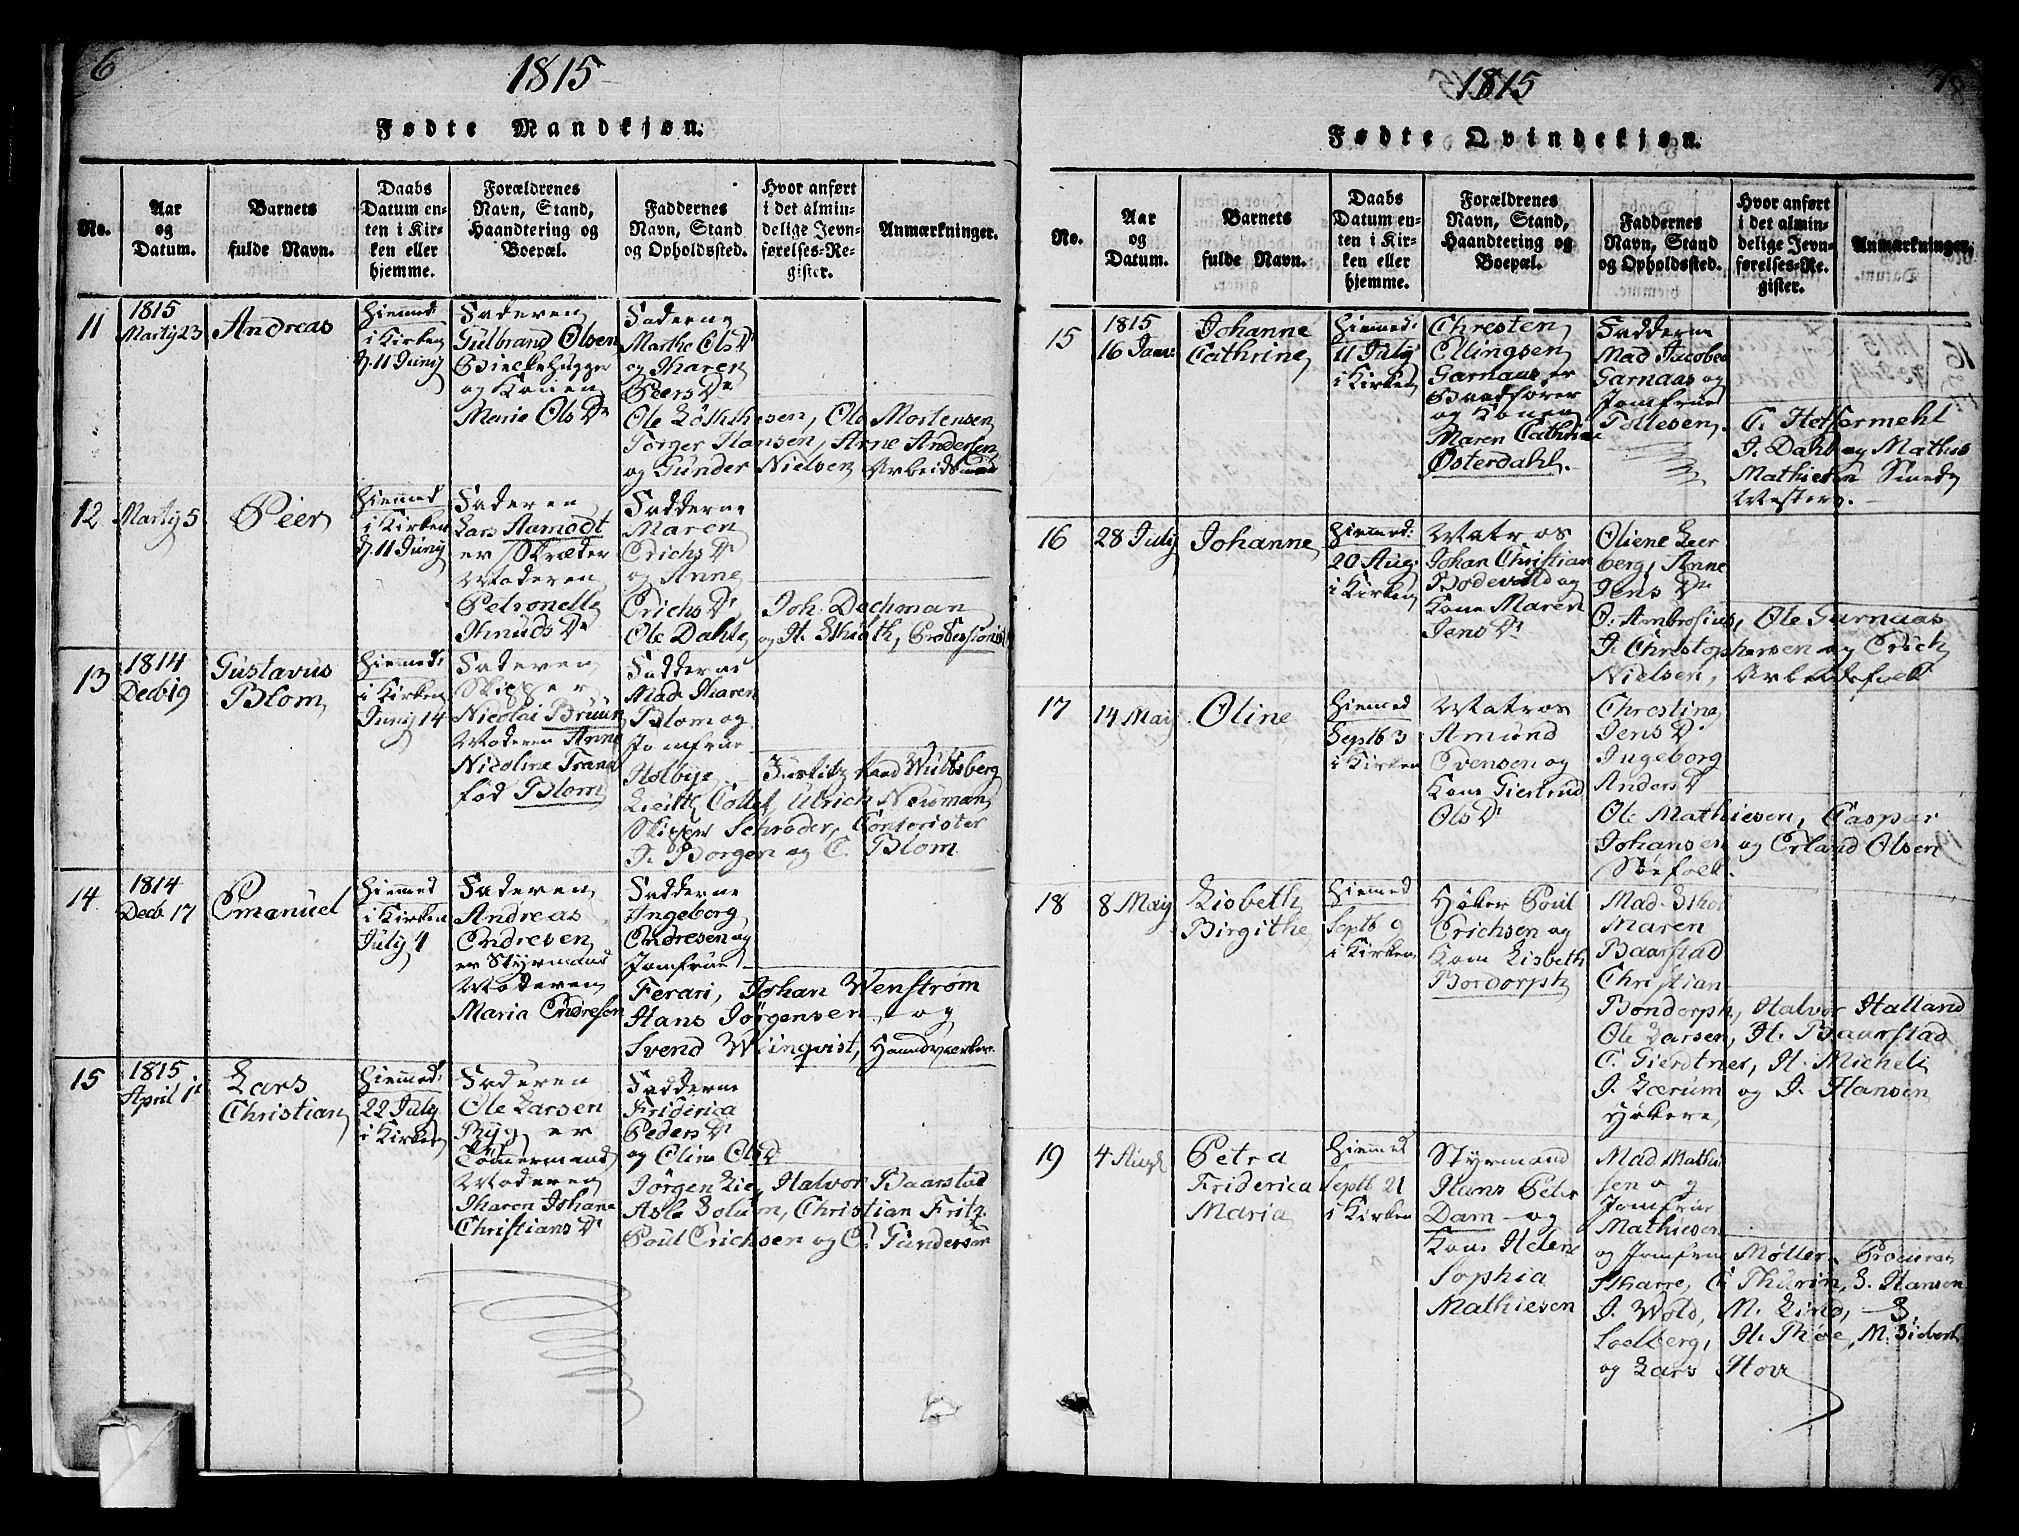 6
1815
Fødte Mandkjøn.
No.
Aar
og
Datum.
Barnets
fulde Navn.
Daabs
Datum en-
ten i Kir-
ken eller
hjemme.
Forældrenes
Navn, Stand,
Haandtering og
Boepæl.
Faddernes
Navn, Stand
og Opholdssted.
Hvor anført
i det almin-
delige Jevn-
førelses-Re-
gister.
Anmærkninger.
11
1815
Martÿ 23
Andreas
Hiemmed:
i Kirken
d. 11 Junÿ
Faderen
Gulbrand Olsen
Bielkehugger
og Konen
Marie Ols Dr
Fadderne
Marthe Ols Dr
og Karen
Peers Dr
Ole Mortensen
Jörger Hansen, Arne Andersen
og Gunder Nielsen Arbeidsmænd
12
Martÿ 5
Peer
Hiemmed
i Kirken
d. 11 Junÿ
Faderen
Lars Aamodt
er Skræder
Moderen
Petronelle
Knuds Dr
Fadderne
Maren
Erichs Dr
og Anne
Erichs Dr
Ole Dahle, Joh: Dechman
og H.
13
1814
Decb 19
Gustavus
Blom
Hiemmed:
i Kirken
Junÿ 14
Faderen
Skipper
Nicolai Bruun
Moderen Anne
Nicoline
fød Blom
Fadderne
Mad. Karen
Blom og
Jomfrue
Holbye
Ulrich Neuman
Skipper Schrøder, Contorister
J. Borgen og C. Blom
14
1814
Decb. 17
Emanuel
Hiemmed
i Kirken
July 4
Faderen
Andreas
Endresen
er Styrmand
Moderen
Maria Endresen
Fadderne
Ingeborg
Endresen og
Jomfrue
Ferari, Johan Wenstrøm
Hans Jörgensen og
Svend Winqvist, Haandværker
15
1815
April 11
Lars
Christian
Hiemmed:
22 July
i Kirken
Faderen
Ole Larsen
Ryg er
Tömmermand
Moderen
Karen Johanne
Christians Dr
Fadderne
Friderica
Peders Dr
og Oline Ols Dr
Jörgen Lie, Halvor Baarstad
Asle Solum, Christian Fritz
Poul Erichsen og C. Gundersen
1815
Fødte Qvindekjøn.
No.
Aar
og
Datum.
Barnets
fulde Navn.
Daabs
Datum en-
ten i Kir-
ken eller
hjemme.
Forældrenes
Navn, Stand,
Haandtering og
Boepæl.
Faddernes
Navn, Stand
og Opholdssted.
Hvor anført
i det almin-
delige Jevn-
førelses-Re-
gister.
Anmærkninger.
15
1815
16 Janr:
Johanne
Cathrine
Hiemmed:
11 July
i Kirken
Chresten
Ellingsen
Garnaas er
og Konen
Maren Cathrine
Østerdahl.
Fadderne
Mad Jacobea
Garnaas og
Jomfrue
Tollesen.
C. Heffermehl
J. Dahl og Mathis
Mathiesen Smede
Mestere.
16
28 July
Johanne
Hiemmed:
20 Aug:
i Kirken
Matros
Johan Christian
Bodevald og
Kone Maren
Jens Dr
Oliene Leer
berg, Anne
Jens Dr
O. Ambrosius, Ole Garnaas
J. Christophersen og Erich
Nielsen, Arbeidsfolk
17
14 May
Oline
Hiemmed
Septb 3
i Kirken
Matros
Amund
Svensen og
Kone Giertrud
Ols Dr
Chrestine
Jens Dr
Ingeborg
Anders Dr
Ole Mathiesen, Caspar
Johansen og Erland Olsen
Söefolk.
18
8 May
Lisbeth
Birgithe
Hiemmed
Septb 9
i Kirken
Høker Poul
Erichsen og
Kone Lisbeth
Bondorph
Maren
Baarstad
Christian
Bondorph, Halvor Halland
Ole Larsen, H. Baarstad
C. Gierdtner, H. Micheli
J. Lærum og J. Hansen
Høkere,
19
4 Aug
Petra
Friderica
Maria
Hiemmed
Septb 21
i Kirken
Styrmand
Hans Peter
Dam og
Kone Helene
Sophia
Mathiesen
Mad. Mathie
sen og
Jomfrue
Mathiesen
og Jomfrue Møller, Procurat
Skarre, C. Thurin, S. Hansen
J. Wold, M. Lind, S
Soelberg, H. Thöe, M. Sivert
og Lars Hove